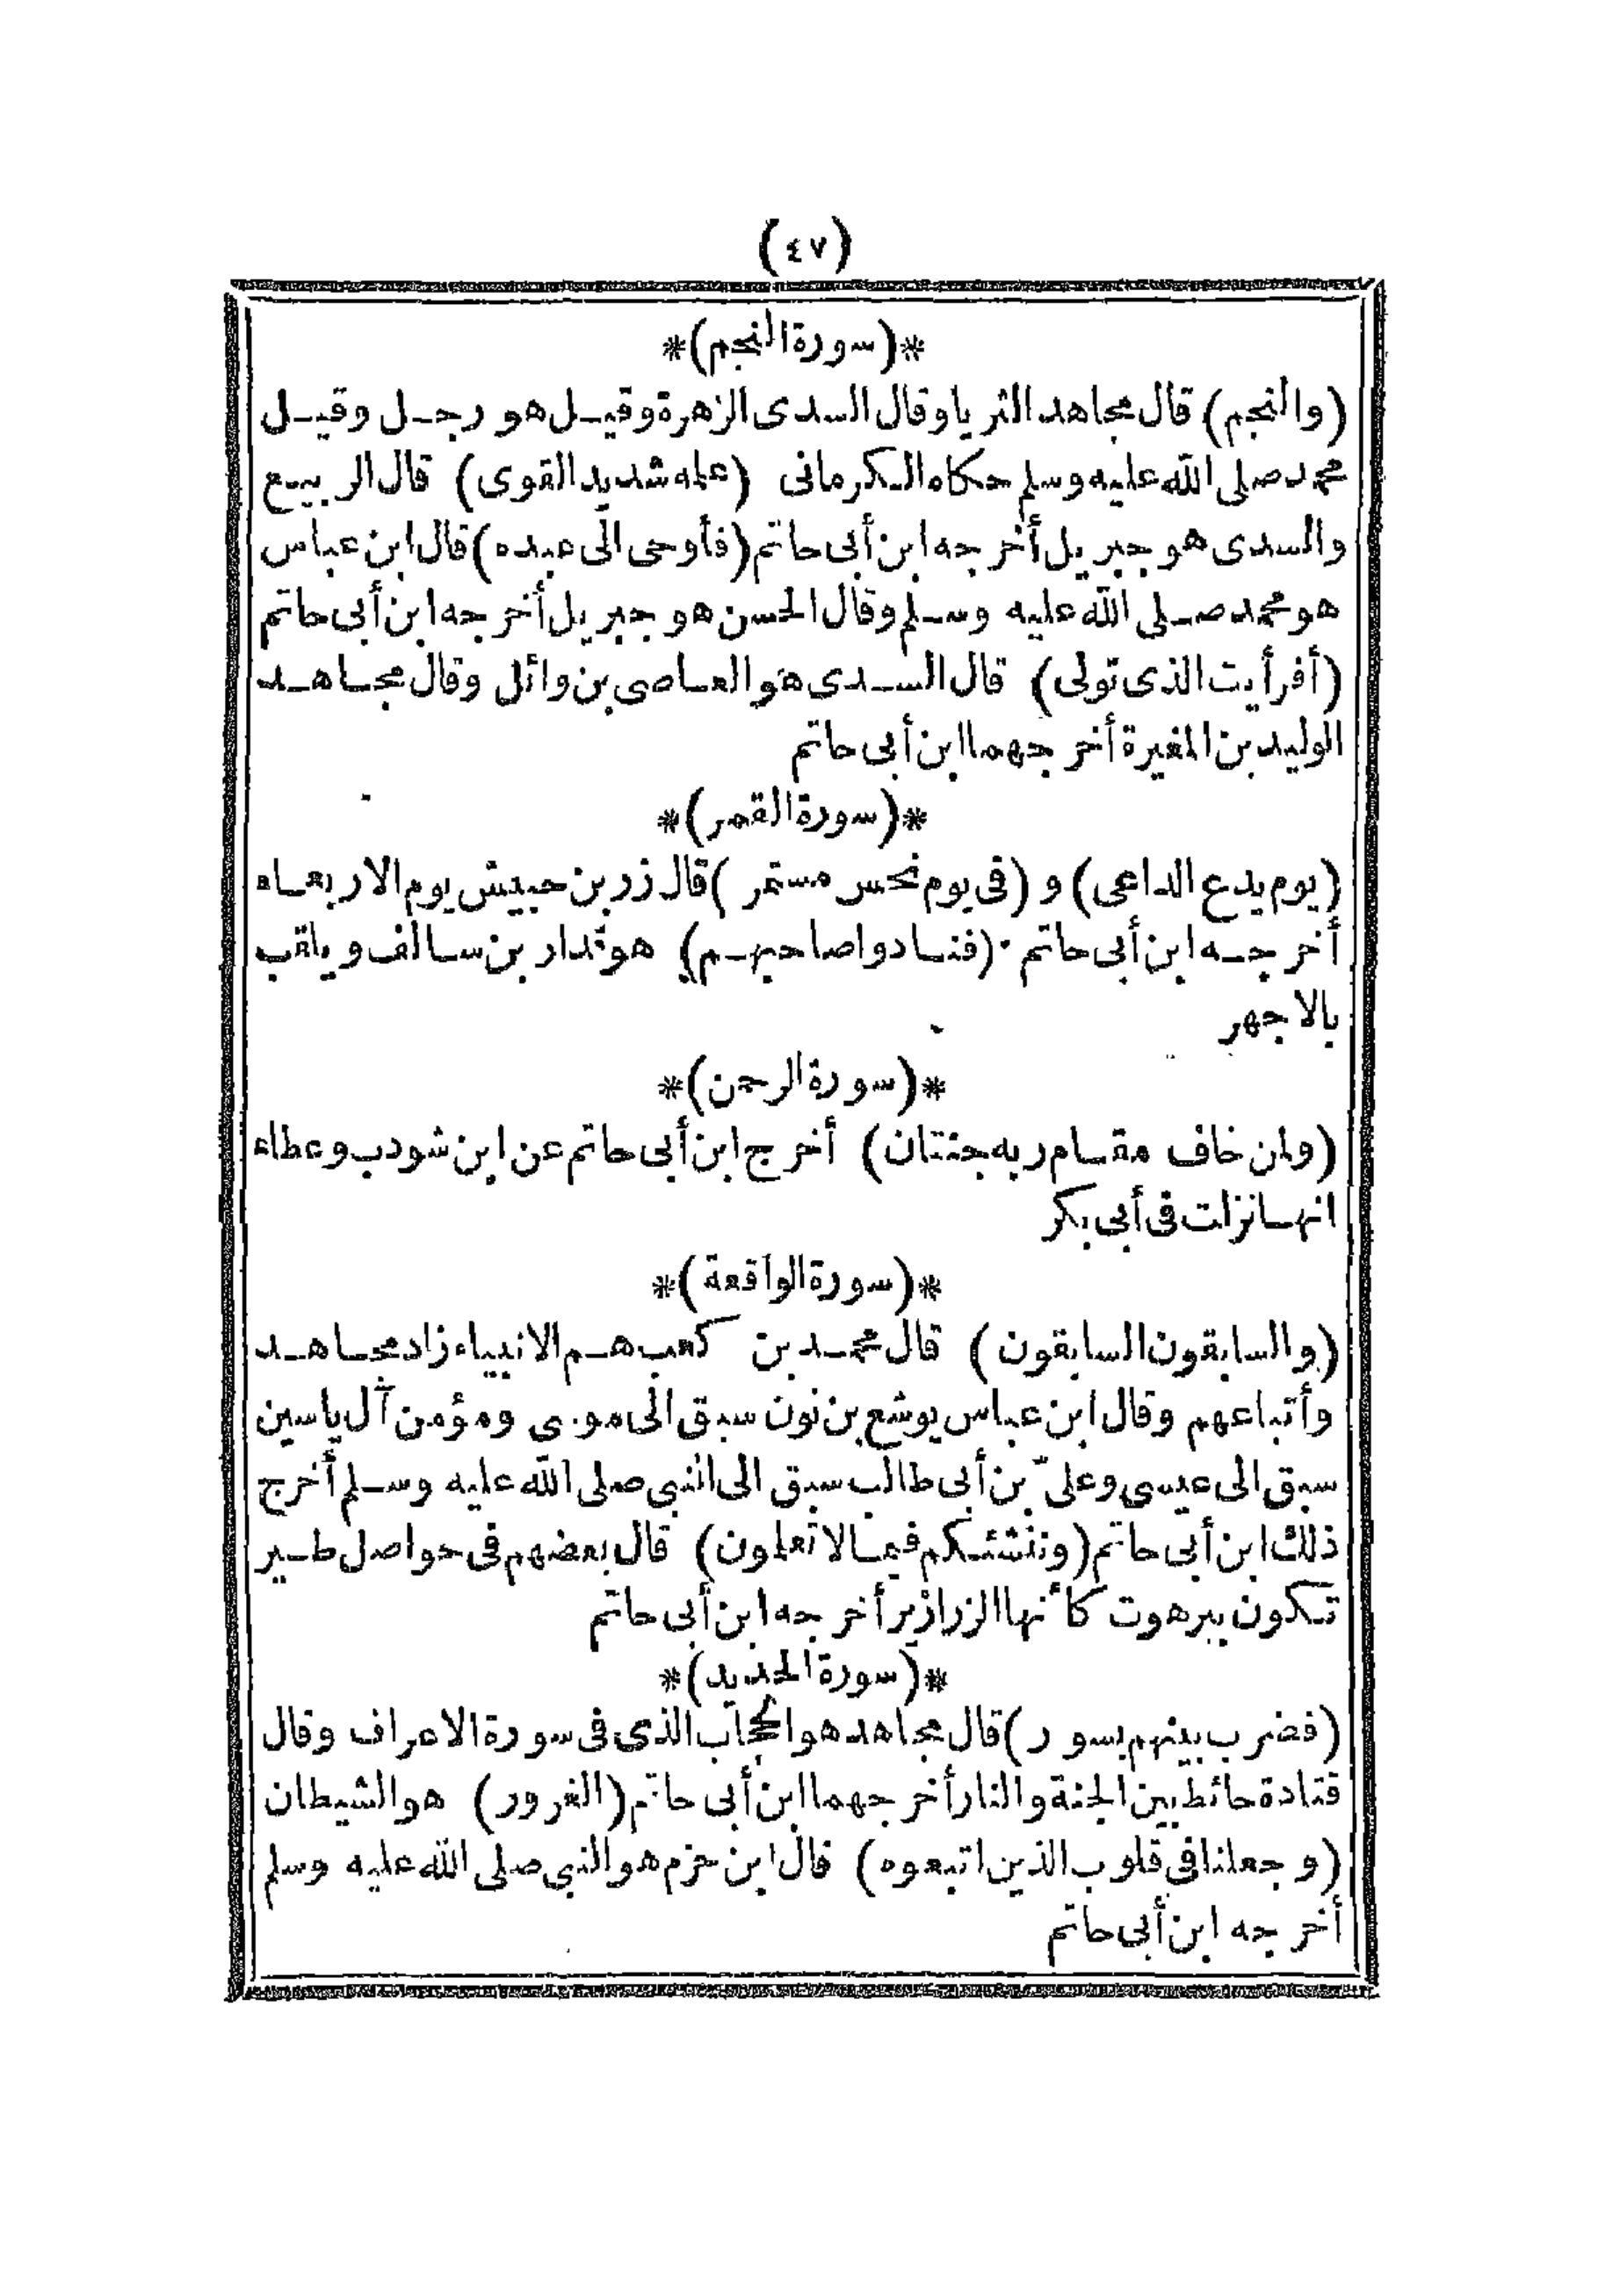 (٤٧)
*(سورة النجم)*
(والنجم) قال مجاهد الثريا وقال السدى الزهرة وقيل هو رجل وقيل
محمد صلى الله عليه وسلم حكاه الكرمانى (علمه شديد القوى) قال الربيع
والسدى هو جبريل أخرجه ابن أبى حاتم (فأوحى الى عبده) قال ابن عباس
هو محمد صلى الله عليه وسلم وقال الحسن هو جبريل أخرجه ابن أبى حاتم
(أفرأيت الذى تولى) قال السدى هو العاصى بن وائل وقال مجاهد
الوليد بن المغيرة أخرجهما ابن أبى حاتم
*(سورة القمر)*
(يوم يدع الداعى) و (فى يوم نحس مستمر) قال زر بن حبيش يوم الاربعاء
أخرجه ابن أبى حاتم (فنادوا صاحبهم) هو قدار بن سالف ويلقب
بالاجهر
*(سورة الرحمن)*
(ولمن خاف مقام ربه جنتان) أخرج ابن أبى حاتم عن ابن شودب وعطاء
انها نزلت فى أبى بكر
*(سورة الواقعة)*
(والسابقون السابقون) قال محمد بن كعب هم الانبياء زاد مجاهد
وأتباعهم وقال ابن عباس يوشع بن نون سبق الى موسى ومؤمن آل ياسين
سبق الى عيسى وعلىّ بن أبى طالب سبق الى النبى صلى الله عليه وسلم أخرج
ذلك ابن أبى حاتم (وننشئكم فيما لا تعلمون) قال بعضهم فى حواصل طير
تكون ببرهوت كأنها الزرازير أخرجه ابن أبى حاتم
*(سورة الحديد)*
(فضرب بينهم بسور) قال مجاهد هو الحجاب الذى فى سورة الاعراف وقال
قتادة حائط بين الجنة والنار أخرجهما ابن أبى حاتم (الغرور) هو الشيطان
(وجعلنا فى قلوب الذين اتبعوه) قال ابن حزم هو النبى صلى الله عليه وسلم
أخرجه ابن أبى حاتم